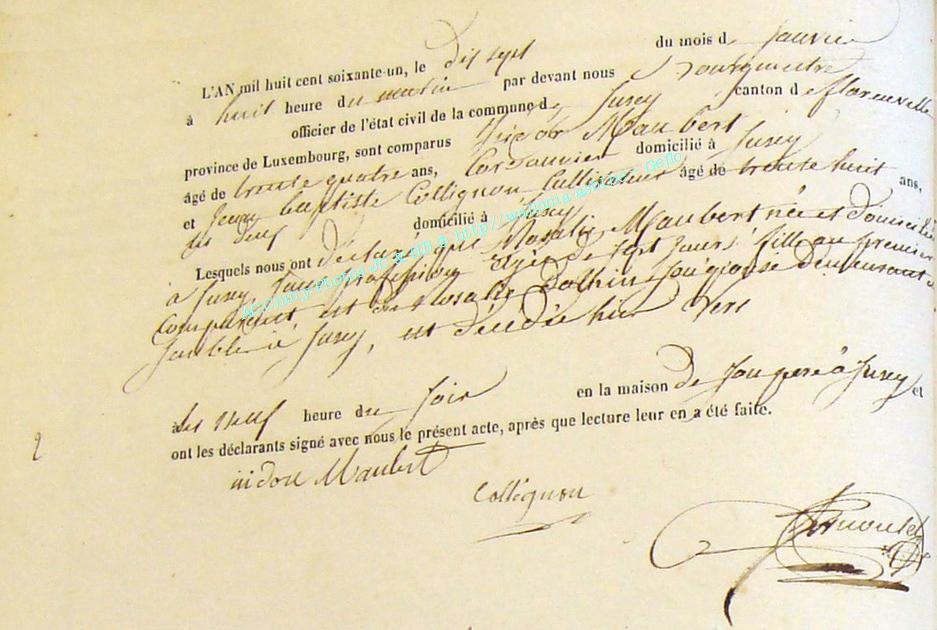 L'AN mil huit cent soixante-un, le dix sept du mois d Janvier
à huit heure du matin par devant nous Bourgmestre
officier de l'état civil de la commune de Jusey canton d e florenville
province de Luxembourg, sont comparus Isidor Maubert
âgé de trente quatre ans, Cordonnier domicilié à Jusey
et Jean baptiste Collignon Cultivateur âgé de trente huit ans,
domicilié à Jusey
Lesquels nous ont déclaré que Rosalie Maubert née et domiciliée
à Jusey, sans profession âgée de sept jours, fille au premier
comparant, et de Rosalie son épouse demeurant
à Jusey, est décédée hier vers
les neuf heure du soir en la maison de son père à Jusey et
ont les déclarants signé avec nous le présent acte, après que lecture leur en a été faite.
isidore Maubert
Collignon
2